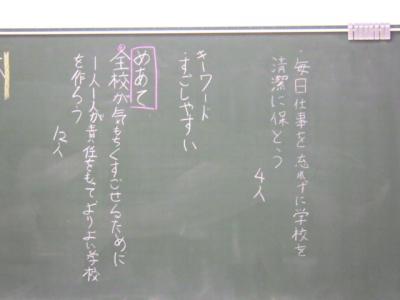 ・毎日仕事を忘れずに学校を
清潔に保とう
4人
キーワード
すごしやすい
めあて
全校が気もちくすごせるために
一人一人が責任をもってよりよい学校
を作ろう
12人